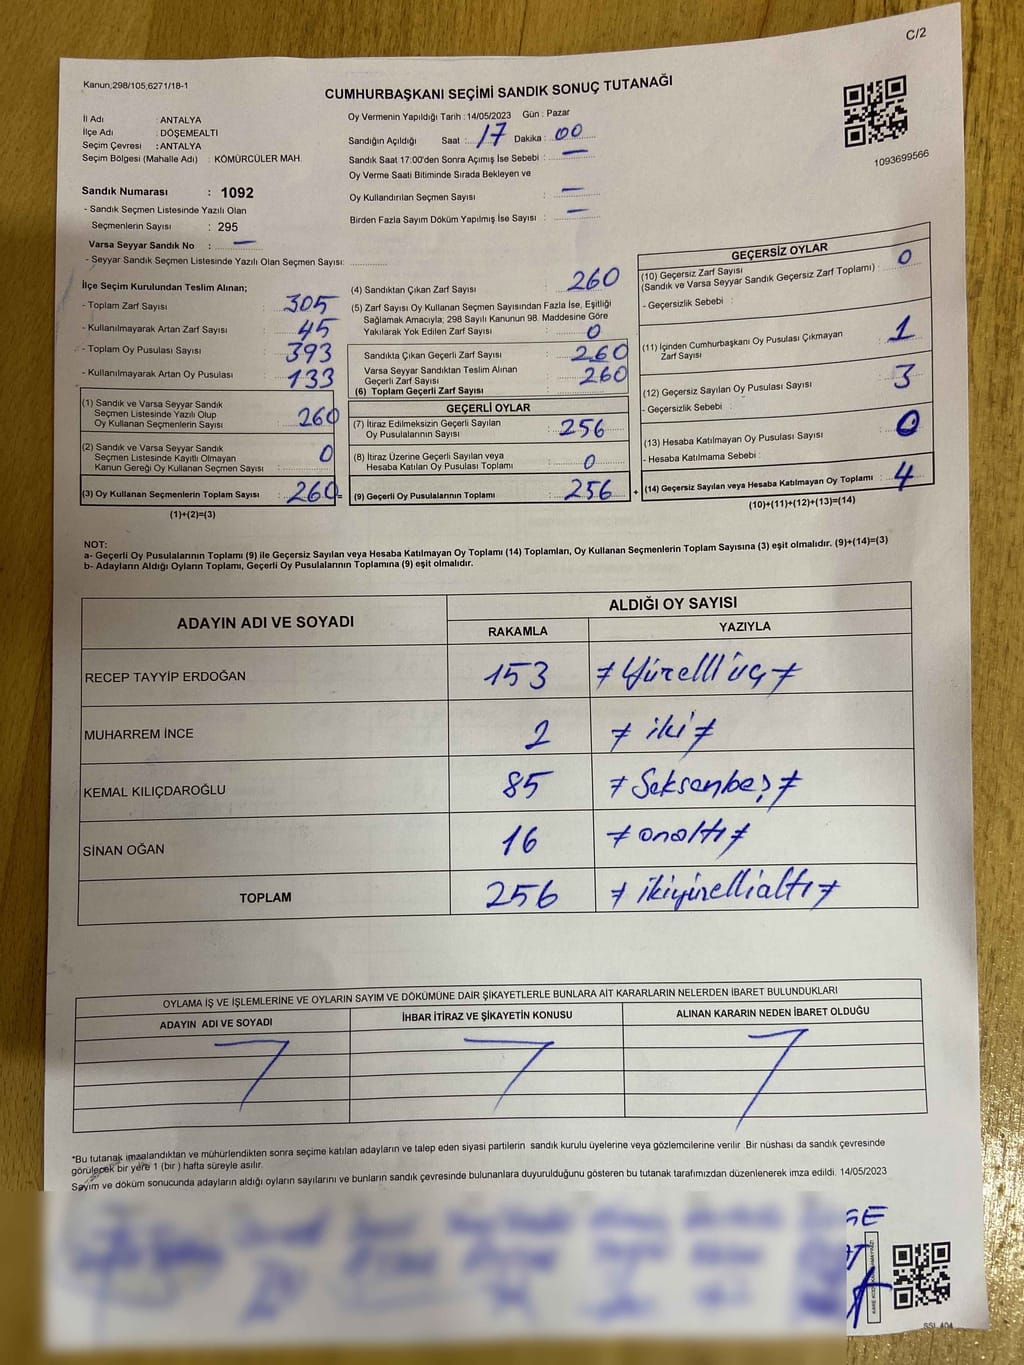 C/2
Kanun,298/105,6271/18-1
CUMHURBAŞKANI SEÇİMİ SANDIK SONUÇ TUTANAĞI
İl Adı : ANTALYA
İlçe Adı : DÖŞEMEALTI
Seçim Çevresi : ANTALYA
Seçim Bölgesi (Mahalle Adı) : KÖMÜRCÜLER MAH.
Sandık Numarası : 1092
- Sandık Seçmen Listesinde Yazılı Olan
Seçmenlerin Sayısı : 295
Varsa Seyyar Sandık No : —
- Seyyar Sandık Seçmen Listesinde Yazılı Olan Seçmen Sayısı:
Oy Vermenin Yapıldığı Tarih : 14/05/2023 Gün : Pazar
Sandığın Açıldığı Saat : 17 Dakika : 00
Sandık Saat 17:00'den Sonra Açımış İse Sebebi : —
Oy Verme Saati Bitiminde Sırada Bekleyen ve
Oy Kullandırılan Seçmen Sayısı : —
Birden Fazla Sayım Döküm Yapılmış İse Sayısı : —
1093699566
İlçe Seçim Kurulundan Teslim Alınan;
- Toplam Zarf Sayısı : 305
- Kullanılmayarak Artan Zarf Sayısı : 45
- Toplam Oy Pusulası Sayısı : 393
- Kullanılmayarak Artan Oy Pusulası : 133
(1) Sandık ve Varsa Seyyar Sandık
Seçmen Listesinde Yazılı Olup
Oy Kullanan Seçmenlerin Sayısı : 260
(2) Sandık ve Varsa Seyyar Sandık
Seçmen Listesinde Kayıtlı Olmayan
Kanun Gereği Oy Kullanan Seçmen Sayısı : 0
(3) Oy Kullanan Seçmenlerin Toplam Sayısı : 260 =
(1)+(2)=(3)
(4) Sandıktan Çıkan Zarf Sayısı : 260
(5) Zarf Sayısı Oy Kullanan Seçmen Sayısından Fazla İse, Eşitliği
Sağlamak Amacıyla; 298 Sayılı Kanunun 98. Maddesine Göre
Yakılarak Yok Edilen Zarf Sayısı : 0
Sandıkta Çıkan Geçerli Zarf Sayısı : 260
Varsa Seyyar Sandıktan Teslim Alınan
Geçerli Zarf Sayısı : 260
(6) Toplam Geçerli Zarf Sayısı :
GEÇERLİ OYLAR
(7) İtiraz Edilmeksizin Geçerli Sayılan
Oy Pusulalarının Sayısı : 256
(8) İtiraz Üzerine Geçerli Sayılan veya
Hesaba Katılan Oy Pusulası Toplamı : 0
(9) Geçerli Oy Pusulalarının Toplamı : 256 +
GEÇERSİZ OYLAR
(10) Geçersiz Zarf Sayısı
(Sandık ve Varsa Seyyar Sandık Geçersiz Zarf Toplamı) : 0
- Geçersizlik Sebebi :
(11) İçinden Cumhurbaşkanı Oy Pusulası Çıkmayan
Zarf Sayısı : 1
(12) Geçersiz Sayılan Oy Pusulası Sayısı : 3
- Geçersizlik Sebebi :
(13) Hesaba Katılmayan Oy Pusulası Sayısı : 0
- Hesaba Katılmama Sebebi :
(14) Geçersiz Sayılan veya Hesaba Katılmayan Oy Toplamı : 4
(10)+(11)+(12)+(13)=(14)
NOT:
a- Geçerli Oy Pusulalarının Toplamı (9) ile Geçersiz Sayılan veya Hesaba Katılmayan Oy Toplamı (14) Toplamları, Oy Kullanan Seçmenlerin Toplam Sayısına (3) eşit olmalıdır. (9)+(14)=(3)
b- Adayların Aldığı Oyların Toplamı, Geçerli Oy Pusulalarının Toplamına (9) eşit olmalıdır.
ADAYIN ADI VE SOYADI ALDIĞI OY SAYISI
RAKAMLA YAZIYLA
RECEP TAYYİP ERDOĞAN 153 Yüzelliüç
MUHARREM İNCE 2 iki
KEMAL KILIÇDAROĞLU 85 Seksenbeş
SİNAN OĞAN 16 onaltı
TOPLAM 256 ikiyüzellialtı
OYLAMA İŞ VE İŞLEMLERİNE VE OYLARIN SAYIM VE DÖKÜMÜNE DAİR ŞİKAYETLERLE BUNLARA AİT KARARLARIN NELERDEN İBARET BULUNDUKLARI
ADAYIN ADI VE SOYADI İHBAR İTİRAZ VE ŞİKAYETİN KONUSU ALINAN KARARIN NEDEN İBARET OLDUĞU
*Bu tutanak imzalandıktan ve mühürlendikten sonra seçime katılan adayların ve talep eden siyasi partilerin sandık kurulu üyelerine veya gözlemcilerine verilir. Bir nüshası da sandık çevresinde
görülecek bir yere 1 (bir ) hafta süreyle asılır.
Sayım ve döküm sonucunda adayların aldığı oyların sayılarını ve bunların sandık çevresinde bulunanlara duyurulduğunu gösteren bu tutanak tarafımızdan düzenlenerek imza edildi. 14/05/2023
SSL 404